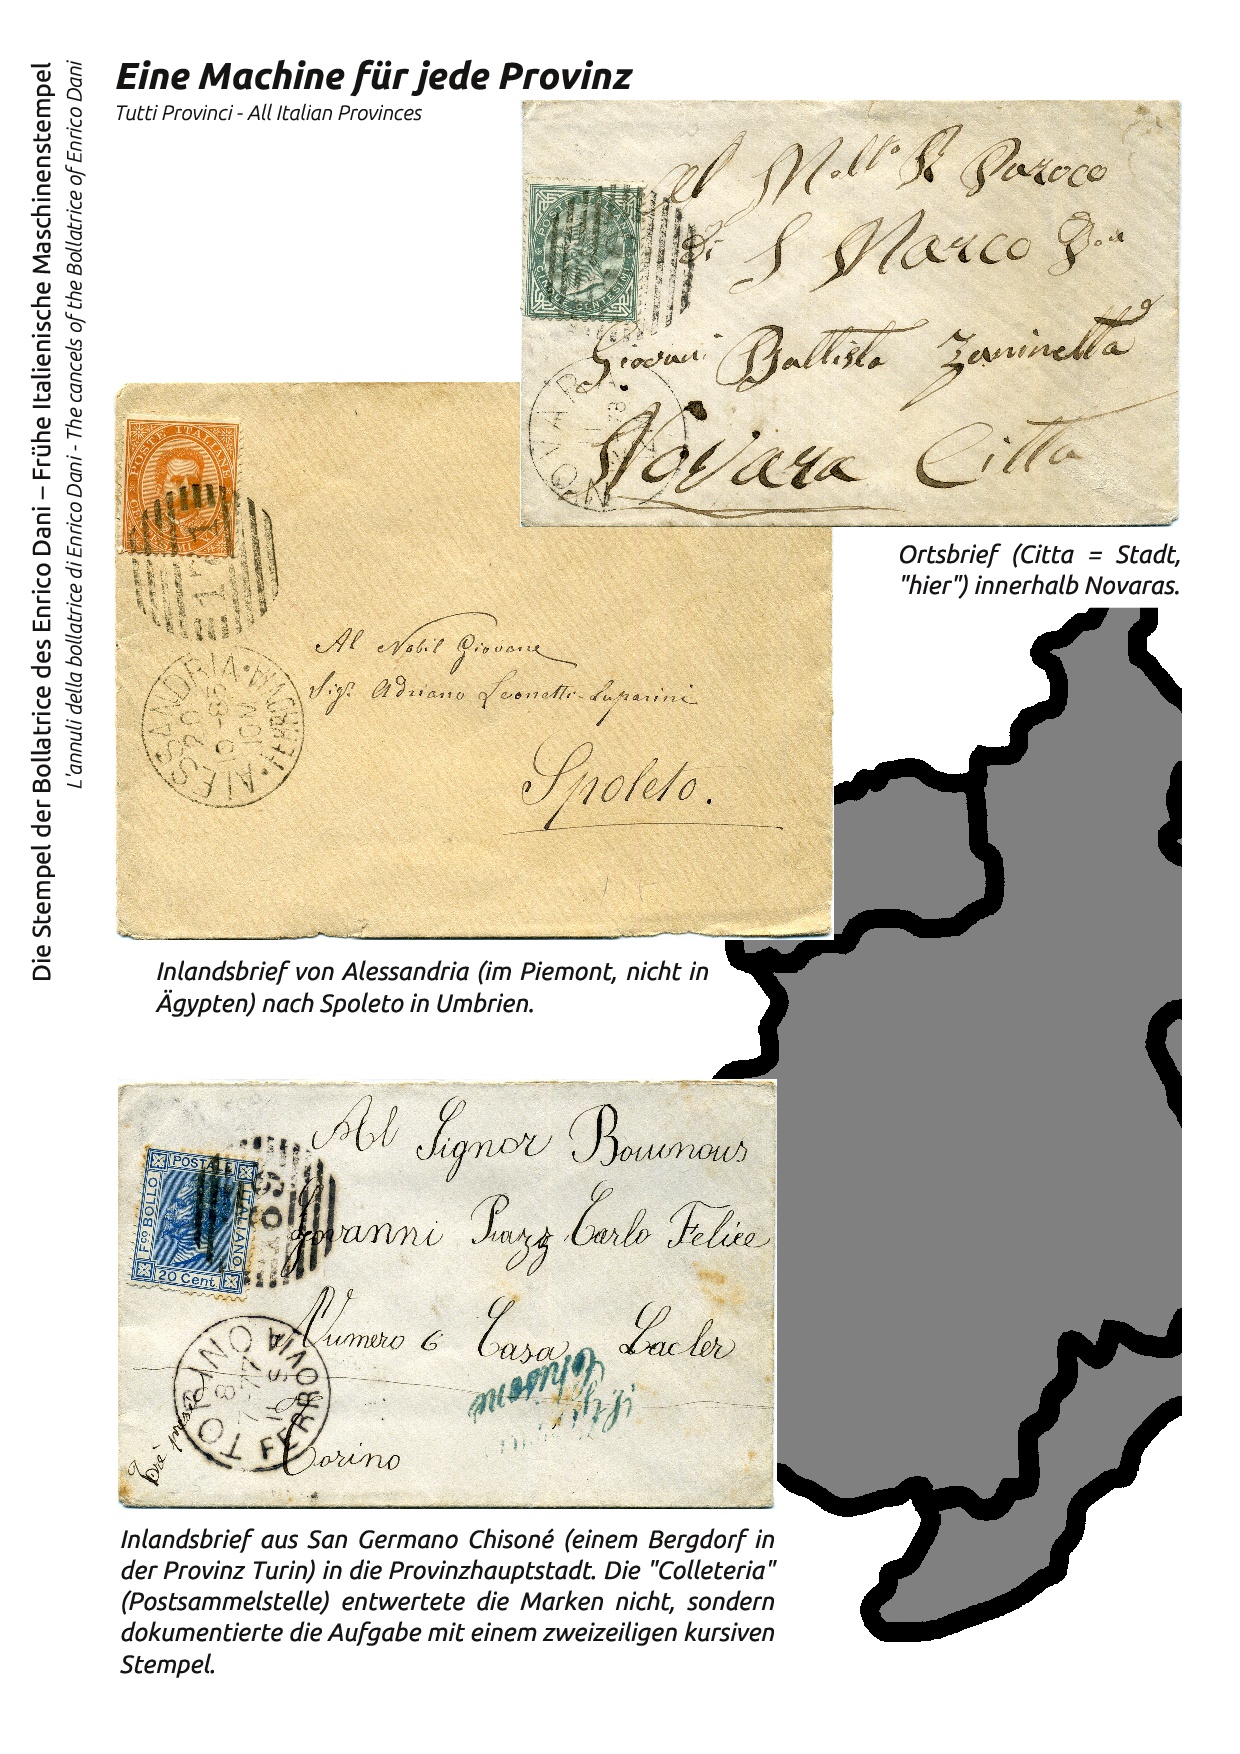 Die Stempel der Bollatrice des Enrico Dani – Frühe Italienische Maschinenstempel
L'annuli della bollatrice di Enrico Dani - The cancels of the Bollatrice of Enrico Dani
Eine Machine für jede Provinz
Tutti Provinci - All Italian Provinces
Al Molto R Paroco
Di S Marco
Giovani Battista Zaninetta
Novara Citta
NOVARA
Ortsbrief (Citta = Stadt,
"hier") innerhalb Novaras.
POSTE ITALIANE
ALESSANDRIA
Al Nobil Giovane
Sigr Adriano Leonetti-Luparini
Spoleto.
Inlandsbrief von Alessandria (im Piemont, nicht in
Ägypten) nach Spoleto in Umbrien.
Al Signor
POSTALE
ITALIANO
Fco BOLLO
20 Cent.
Giovanni Piazz Carlo Felice
Numero 6 Casa
TORINO
FERROVIA
Chisone
Torino
Inlandsbrief aus San Germano Chisoné (einem Bergdorf in
der Provinz Turin) in die Provinzhauptstadt. Die "Colleteria"
(Postsammelstelle) entwertete die Marken nicht, sondern
dokumentierte die Aufgabe mit einem zweizeiligen kursiven
Stempel.